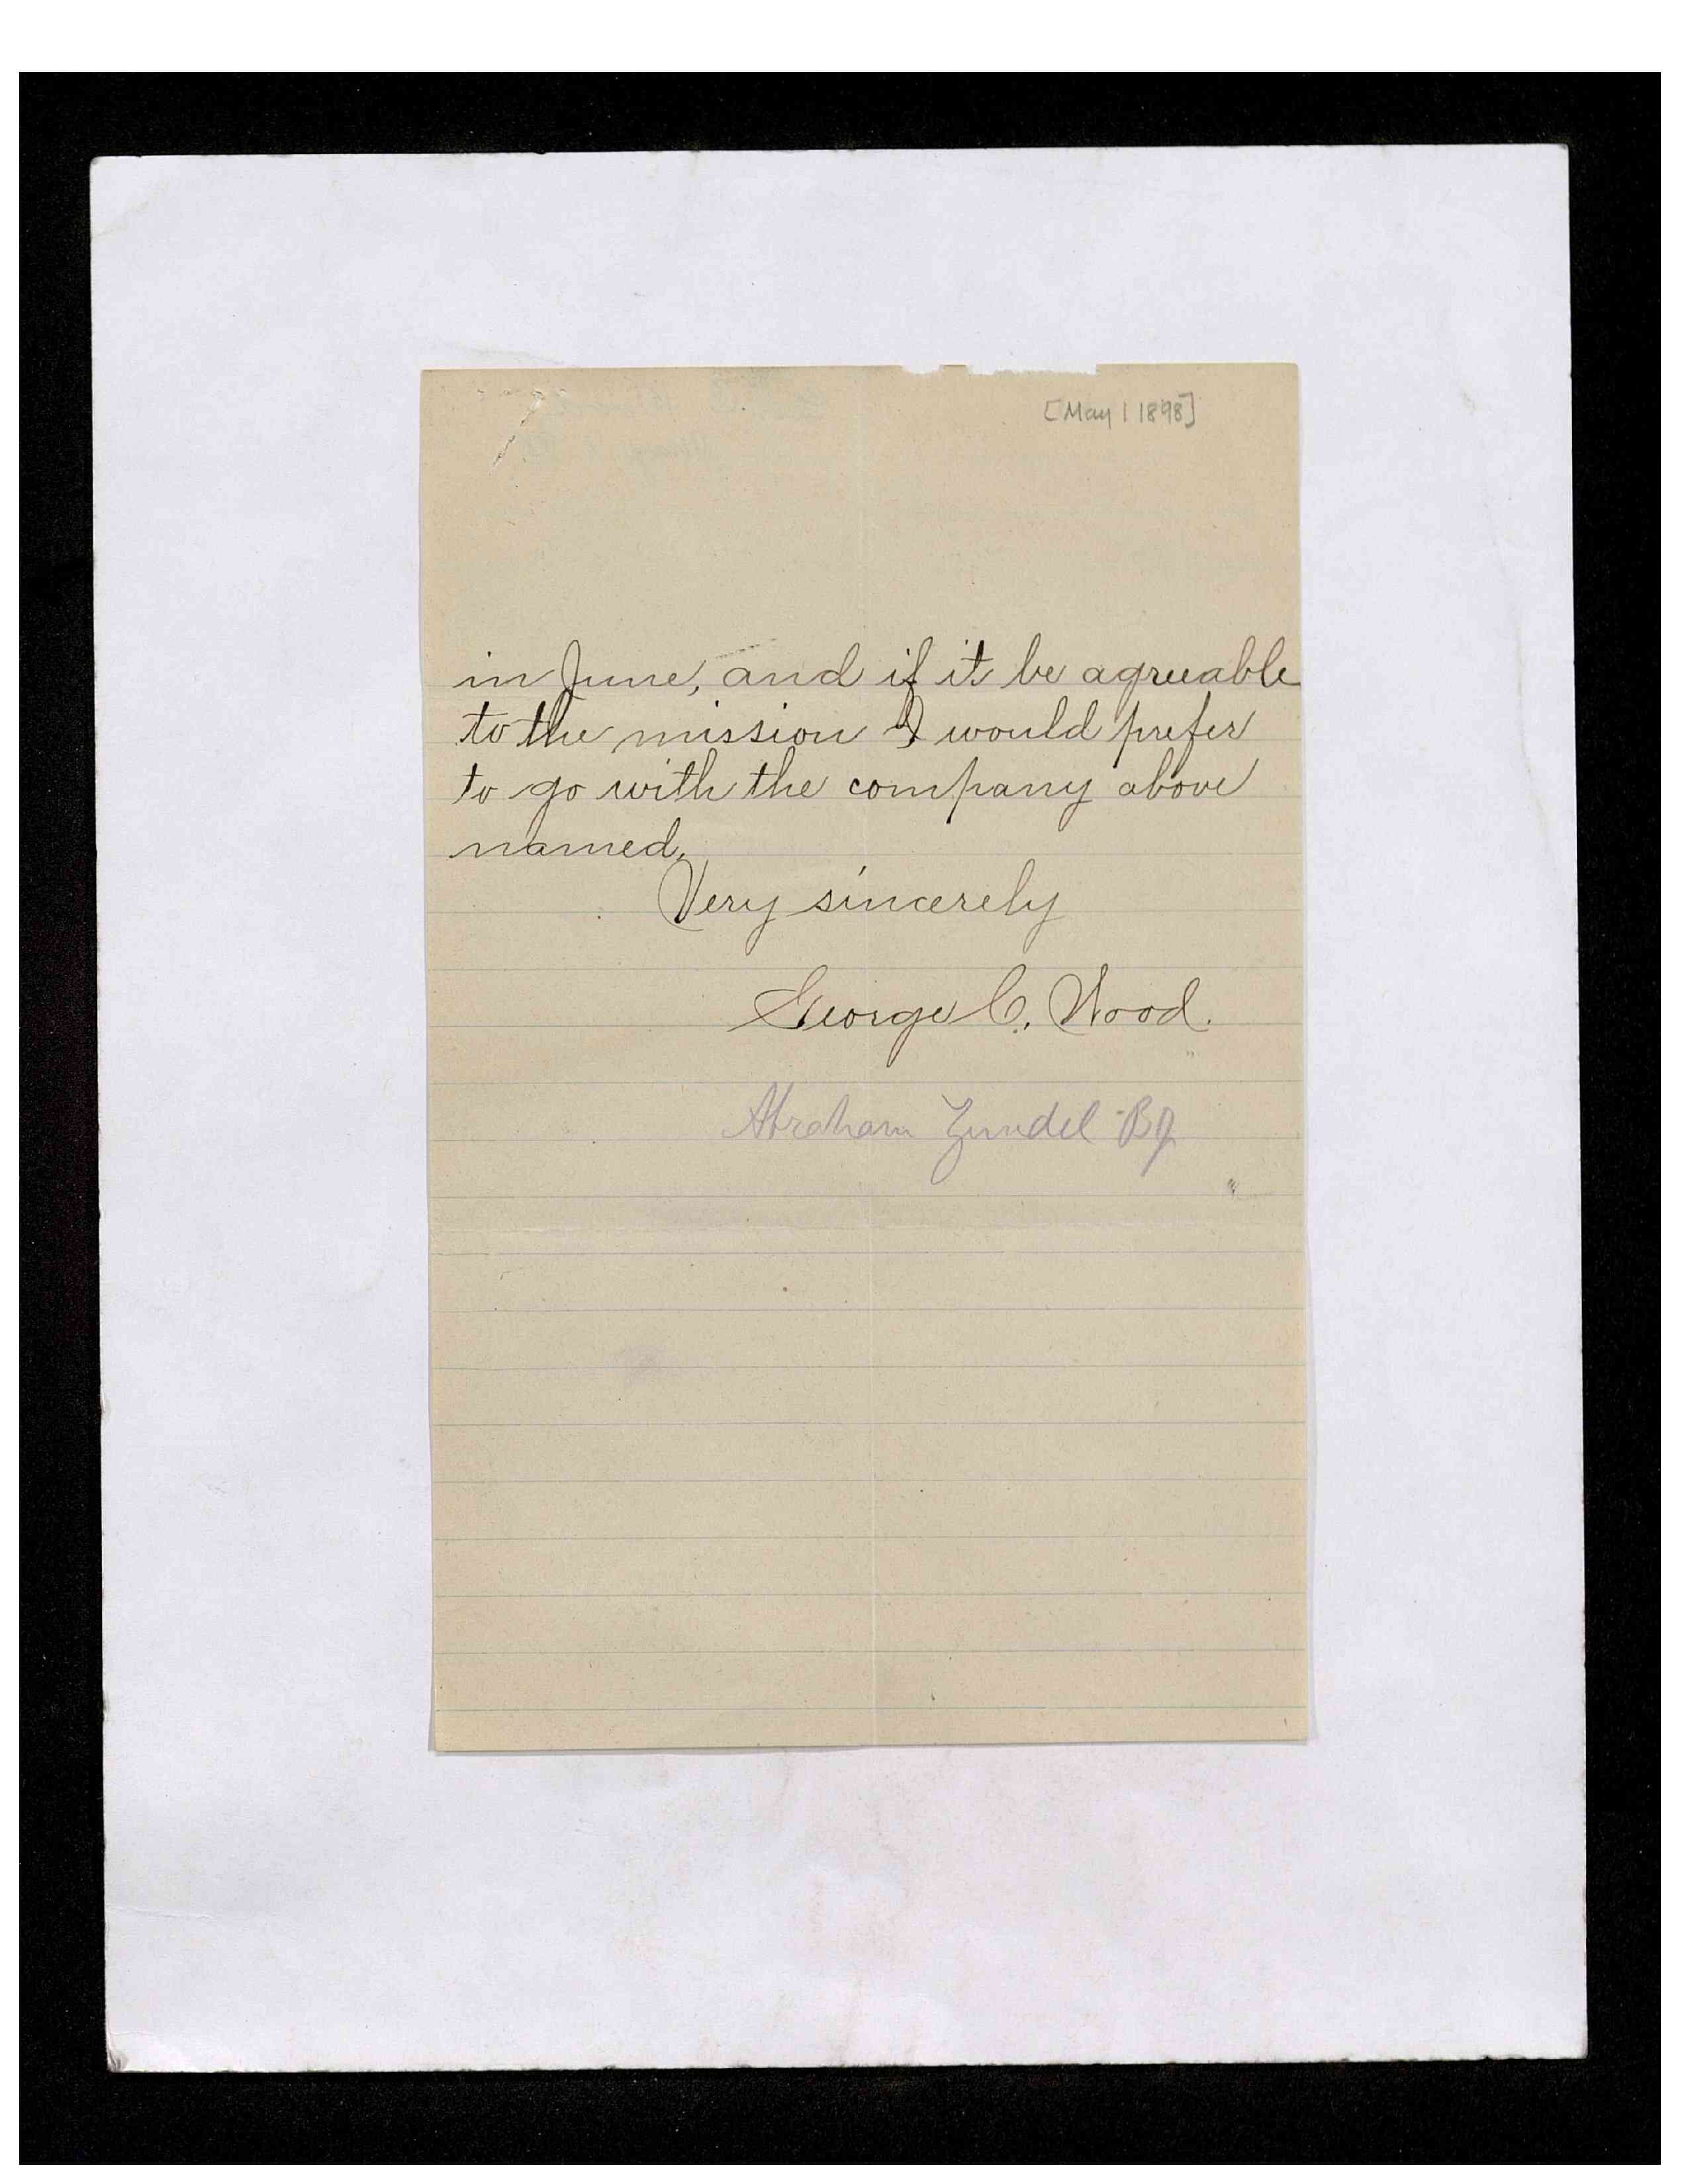 [May 1 1898]
in June, and if it be agreeable
to the mission I would prefer
to go with the company above
named.
Very sincerely
George C. Wood.
Abraham Zundel Bp